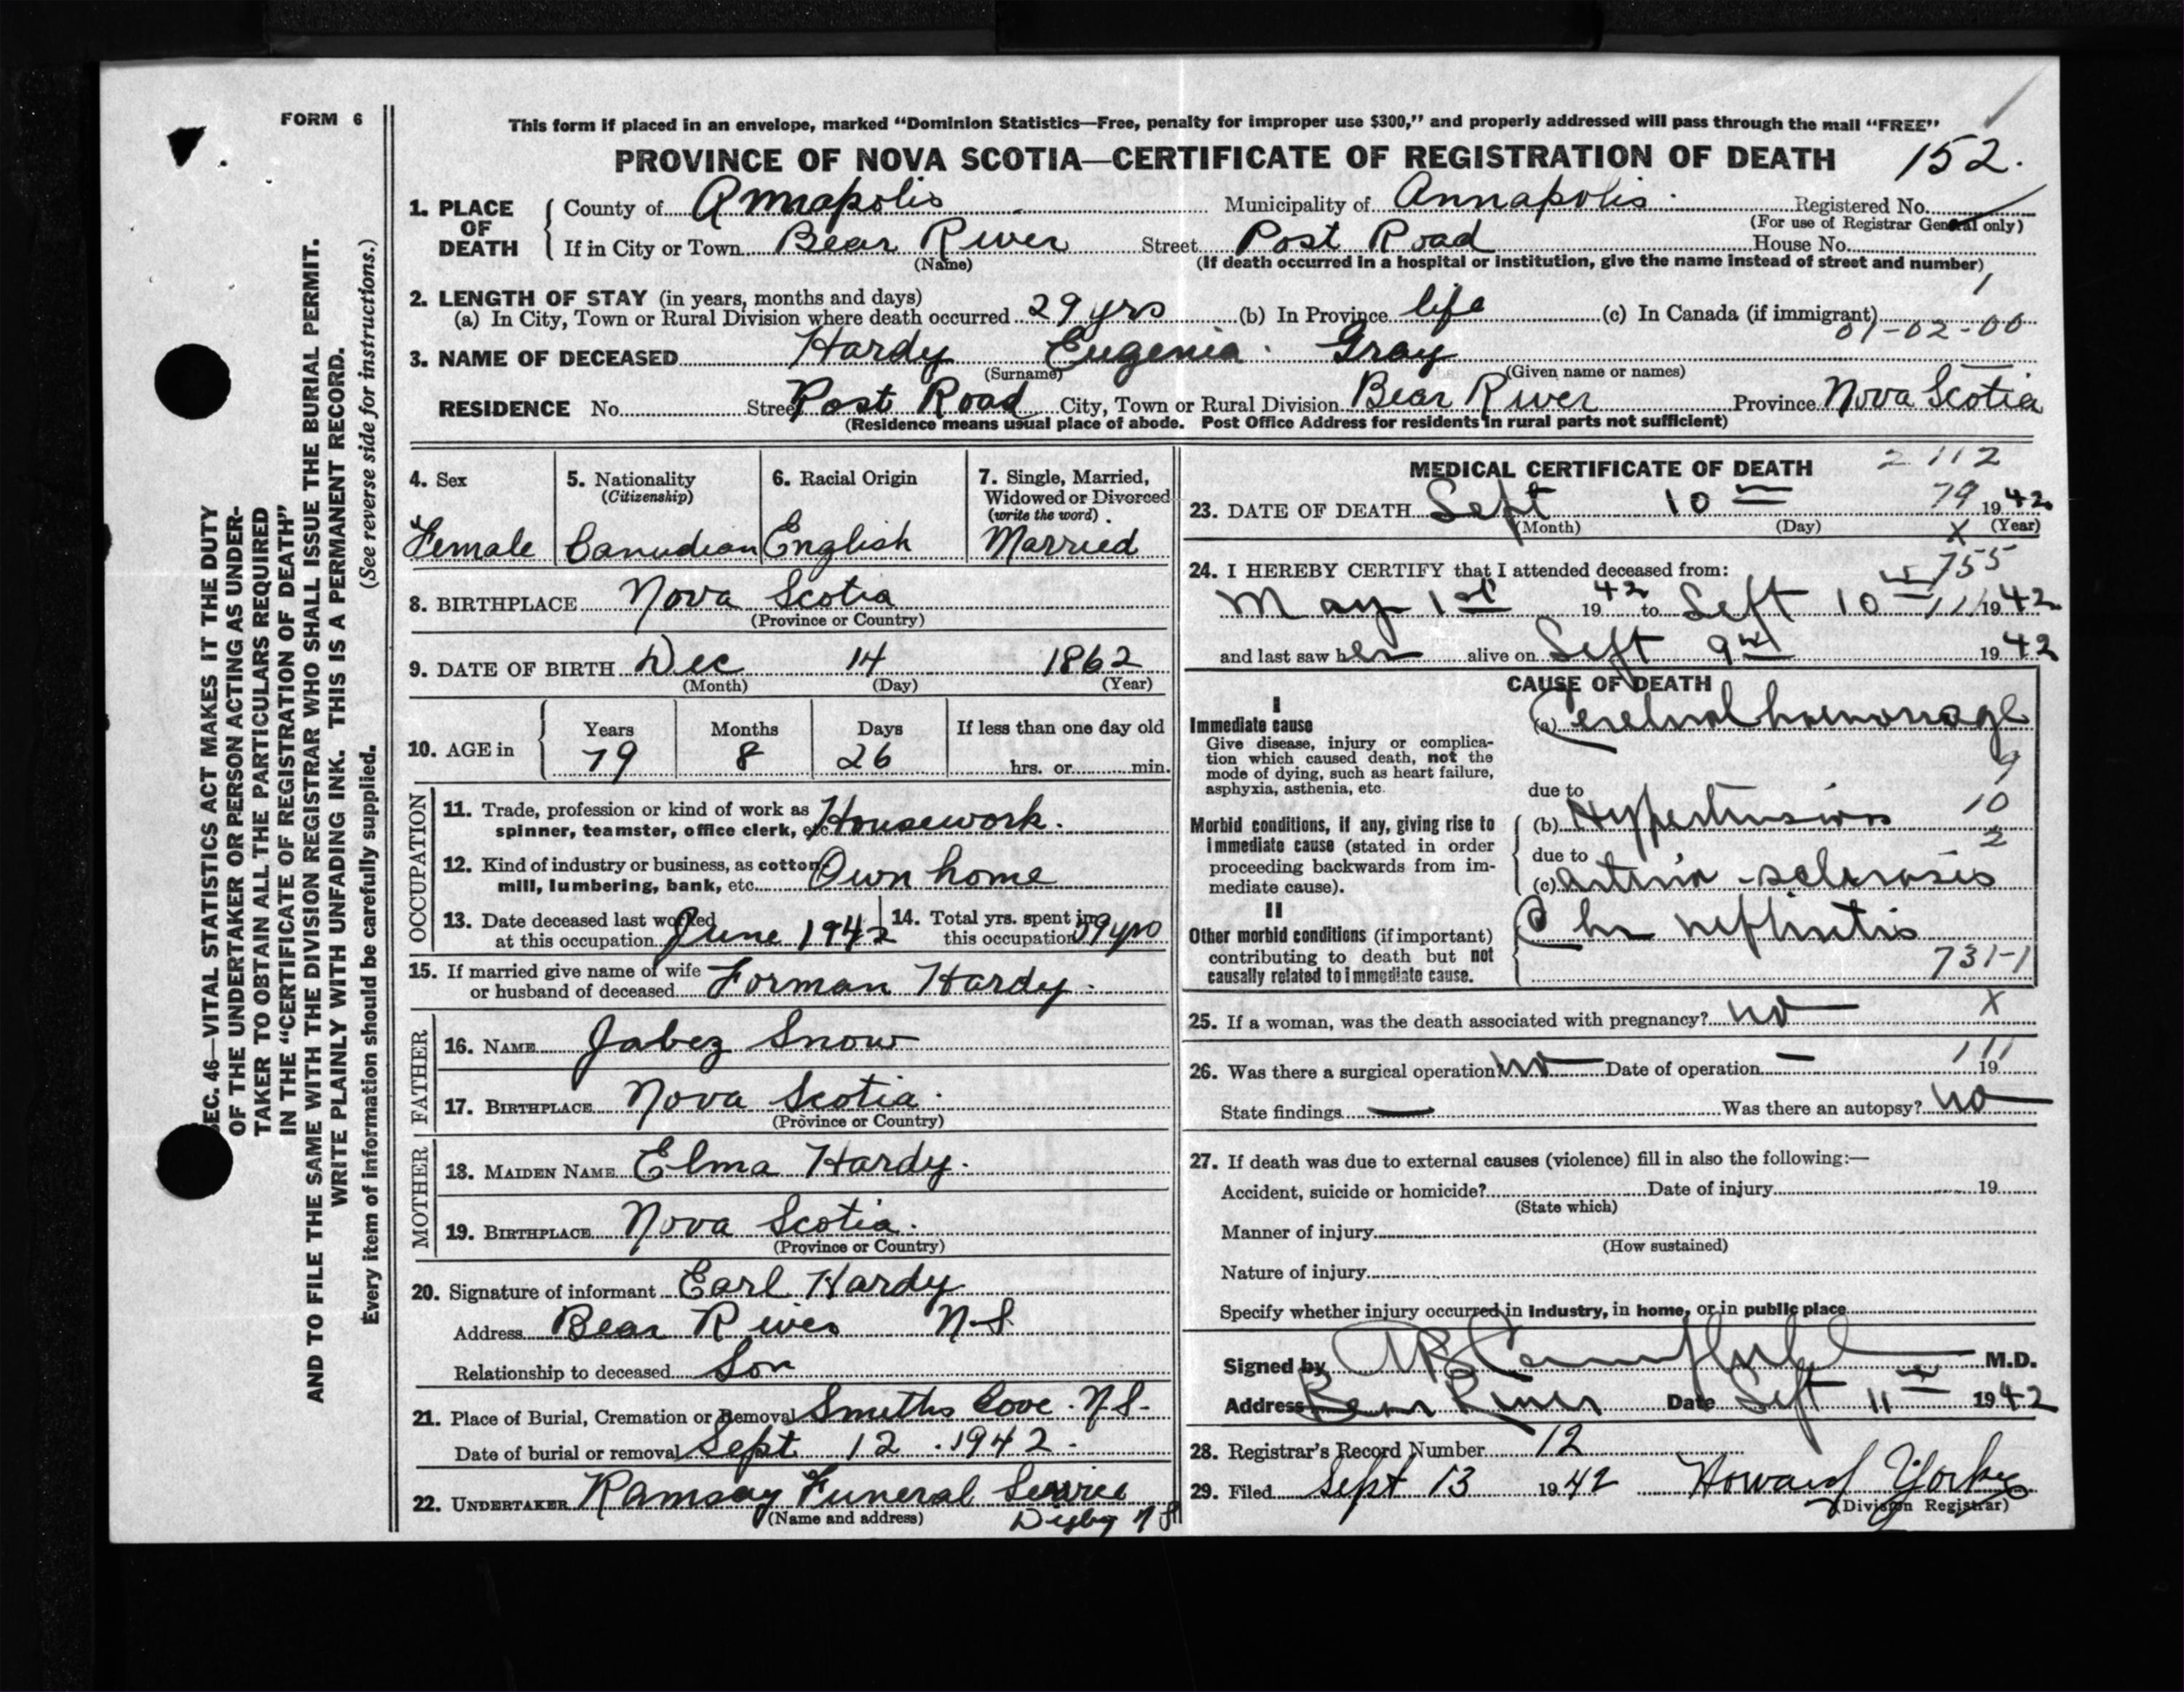 FORM 6
SEC. 46—VITAL STATISTICS ACT MAKES IT THE DUTY
OF THE UNDERTAKER OR PERSON ACTING AS UNDER-
TAKER TO OBTAIN ALL THE PARTICULARS REQUIRED
IN THE "CERTIFICATE OF REGISTRATION OF DEATH"
AND TO FILE THE SAME WITH THE DIVISION REGISTRAR WHO SHALL ISSUE THE BURIAL PERMIT.
WRITE PLAINLY WITH UNFADING INK. THIS IS A PERMANENT RECORD.
Every item of information should be carefully supplied. (See reverse side for instructions.)
This form if placed in an envelope, marked "Dominion Statistics—Free, penalty for improper use $300," and properly addressed will pass through the mail "FREE"
PROVINCE OF NOVA SCOTIA—CERTIFICATE OF REGISTRATION OF DEATH 152.
1. PLACE OF DEATH County of Annapolis Municipality of Annapolis Registered No.
(For use of Registrar General only)
If in City or Town Bear River Street Post Road House No.
(Name) (If death occurred in a hospital or institution, give the name instead of street and number)
2. LENGTH OF STAY (in years, months and days) 1
(a) In City, Town or Rural Division where death occurred 29 yrs (b) In Province life (c) In Canada (if immigrant)
01-02-00
3. NAME OF DECEASED Hardy Eugenia Gray
(Surname) (Given name or names)
RESIDENCE No. Street Post Road City, Town or Rural Division Bear River Province Nova Scotia
(Residence means usual place of abode. Post Office Address for residents in rural parts not sufficient)
4. Sex 5. Nationality (Citizenship) 6. Racial Origin 7. Single, Married, Widowed or Divorced (write the word)
Female Canadian English Married
8. BIRTHPLACE Nova Scotia
(Province or Country)
9. DATE OF BIRTH Dec 14 1862
(Month) (Day) (Year)
10. AGE in Years Months Days If less than one day old
79 8 26 hrs. or min.
OCCUPATION
11. Trade, profession or kind of work as
spinner, teamster, office clerk, etc. Housework.
12. Kind of industry or business, as cotton
mill, lumbering, bank, etc. Own home
13. Date deceased last worked
at this occupation June 1942
14. Total yrs. spent in
this occupation 59 yrs
15. If married give name of wife
or husband of deceased Forman Hardy.
FATHER
16. NAME Jabez Snow
17. BIRTHPLACE Nova Scotia.
(Province or Country)
MOTHER
18. MAIDEN NAME Elma Hardy.
19. BIRTHPLACE Nova Scotia.
(Province or Country)
20. Signature of informant Earl Hardy
Address Bear River N.S.
Relationship to deceased Son
21. Place of Burial, Cremation or Removal Smiths Cove. N.S.
Date of burial or removal Sept 12. 1942.
22. UNDERTAKER Ramsay Funeral Service
(Name and address) Digby N.S.
MEDICAL CERTIFICATE OF DEATH 2112
23. DATE OF DEATH Sept 10th 79 1942
(Month) (Day) X (Year)
24. I HEREBY CERTIFY that I attended deceased from: 755
May 1st 1942 to Sept 10th 111 1942
and last saw her alive on Sept 9th 1942
CAUSE OF DEATH
I
Immediate cause
Give disease, injury or complica-
tion which caused death, not the
mode of dying, such as heart failure,
asphyxia, asthenia, etc.
(a) Cerebral haemorrage
9
due to
Morbid conditions, if any, giving rise to
immediate cause (stated in order
proceeding backwards from im-
mediate cause).
(b) Hypertension 10
due to 2
(c) Arterio-sclerosis
II
Other morbid conditions (if important)
contributing to death but not
causally related to immediate cause.
Chr nephritis
731-1
25. If a woman, was the death associated with pregnancy? no X
26. Was there a surgical operation no Date of operation – 111 19
State findings — Was there an autopsy? no
27. If death was due to external causes (violence) fill in also the following:—
Accident, suicide or homicide? Date of injury 19
(State which)
Manner of injury
(How sustained)
Nature of injury
Specify whether injury occurred in industry, in home, or in public place
Signed by M.D.
Address Bear River Date Sept 11th 1942
28. Registrar's Record Number 12
29. Filed Sept 13 1942 Howard Yorke
(Division Registrar)